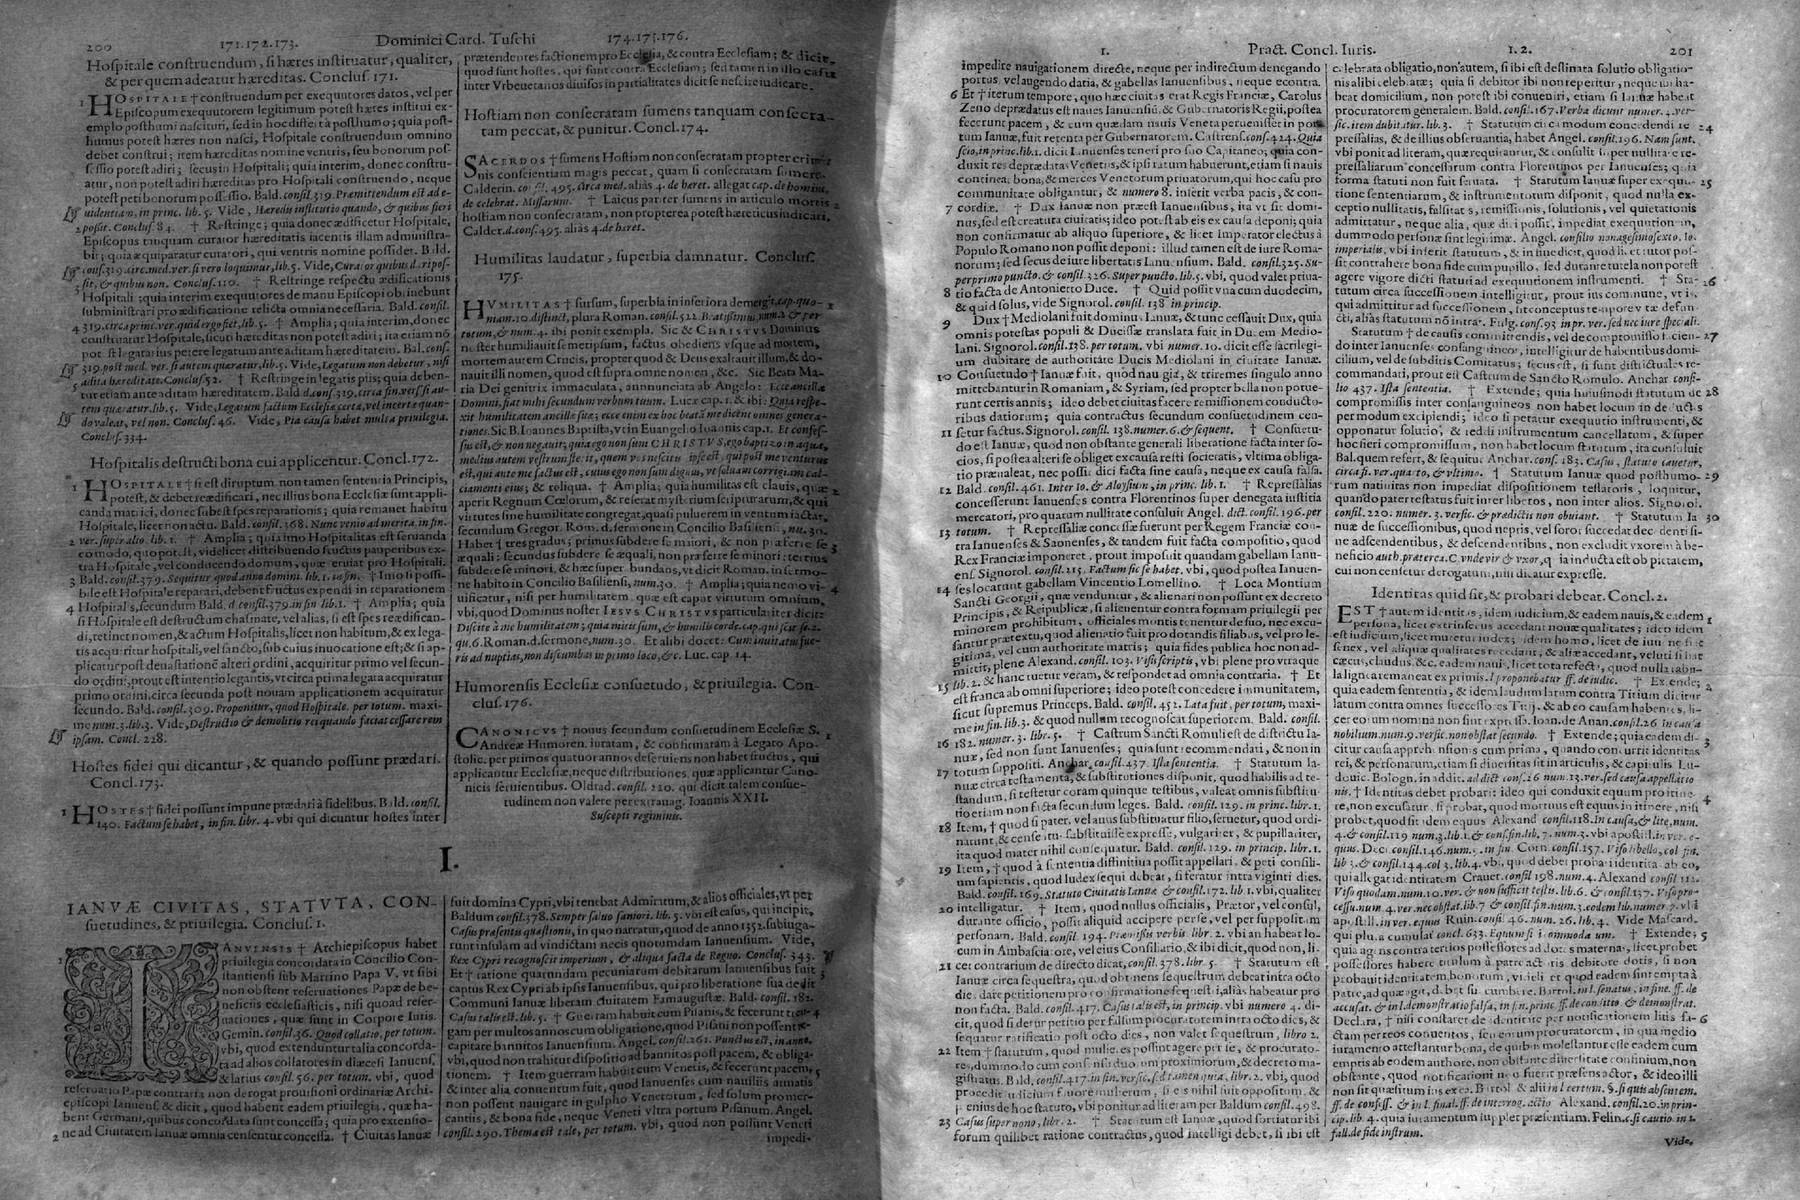 200 171.172.173. Dominici Card. Tuschi 174.175.176.
Hospitale construendum, si hæres instituatur, qualiter,
& per quem adeatur hæreditas. Conclus. 171.
1 HOSPITALE † construendum per exequutores datos, vel per
Episcopum exequutorem legitimum potest hæres institui ex-
emplo posthumi nascituri, sed in hoc differt à posthumo; quia post-
humus potest hæres non nasci, Hospitale construendum omnino
debet construi; item hæreditas nomine ventris, seu bonorum pos-
sessio potest adiri; secus in Hospitali; quia interim, donec constru-
atur, non potest adiri hæreditas pro Hospitali construendo, neque
potest peti bonorum possessio. Bald. consil. 319. Præmittendum est ad e-
uidentiam, in princ. lib. 5. Vide, Hæredis institutio quando, & quibus fieri
2 possit. Conclus. 84. † Restringe; quia donec ædificetur Hospitale,
Episcopus tanquam curator hæreditatis iacentis illam administra-
bit; quia æquiparatur curatori, qui ventris nomine possidet. Bald.
cons. 319. circ. med. ver. si vero loquimur, lib. 5. Vide, Curator quibus d. ripos-
3 sit, & quibus non. Conclus. 110. † Restringe respectu ædificationis
Hospitali; quia interim exequutores de manu Episcopi obtinebunt
subministrari pro ædificatione relicta omnia necessaria. Bald. consil.
4 319. circa princ. ver. quid ergo fiet, lib. 5. † Amplia; quia interim, donec
construatur Hospitale, sicuti hæreditas non potest adiri; ita etiam nō
pot. st legatarius petere legatum ante aditam hæreditatem. Bal. cons.
319. post med. ver. si autem quæratur, lib. 5. Vide, Legatum non debetur, nisi
5 adita hæreditate. Conclus. 52. † Restringe in legatis piis; quia deben-
tur etiam ante aditam hæreditatem. Bald. d. cons. 319. circa fin. vers. si au-
tem quæratur. lib. 5. Vide, Legatum factum Ecclesiæ certæ, vel incertæ quan-
do valeat, vel non. Conclus. 46. Vide, Pia causa habet multa priuilegia.
Conclus. 334.
Hospitalis destructi bona cui applicentur. Concl. 172.
1 HOSPITALE † si est diruptum. non tamen sententia Principis,
potest, & debet reædificari, nec illius bona Ecclesiæ sunt appli-
canda matrici, donec subest spes reparationis; quia remanet habitu
Hospitale, licet non actu. Bald. consil. 368. Nunc venio ad merita, in fin.
2 ver. super alio. lib. 1. † Amplia; quia imo Hospitalitas est seruanda
eo modo, quo pot. st, videlicet distribuendo fructus pauperibus ex-
tra Hospitale, vel conducendo domum, quæ eruiat pro Hospitali.
3 Bald. consil. 379. Sequitur quod anno domini. lib. 1. † Imo si possi-
bile est Hospitale reparari, debent fructus expendi in reparationem
4 Hospitalis, secundum Bald. d. consil. 379. in fin. lib. 1. † Amplia; quia
si Hospitale est destructum chasmate, vel alias, si est spes reædifican-
di, retinet nomen, & actum Hospitalis, licet non habitum, & ex lega-
tis acquiritur hospitali, vel sancto, sub cuius inuocatione est; & si ap-
plicatur post deuastationē alteri ordini, acquiritur primo vel secun-
do ordini, prout est intentio legantis, vt circa prima legata acquiratur
primo ordini, circa secunda post nouam applicationem acquiratur
secundo. Bald. consil. 309. Proponitur, quod Hospitale. per totum. maxi-
me num. 3. lib. 3. Vide, Destructio & demolitio rei quando faciat cessare rem
ipsam. Concl. 228.
Hostes fidei qui dicantur, & quando possunt prædari.
Concl. 173.
1 HOSTES † fidei possunt impune prædari à fidelibus. Bald. consil.
140. Factum se habet, in fin. libr. 4. vbi qui dicuntur hostes inter
prætendentes factionem pro Ecclesia, & contra Ecclesiam; & dicit,
quod sunt hostes, qui sunt contra Ecclesiam; sed tamen in illo casu
inter Vrbeuetanos diuisos in partialitates dicit se nescire iudicare.
Hostiam non consecratam sumens tanquam consecra-
tam peccat, & punitur. Concl. 174.
SACERDOS † sumens Hostiam non consecratam propter crimi- 1
nis conscientiam magis peccat, quam si consecratam sumere.
Calderin. consil. 495. circa med. aliàs 4. de heret. allegat cap. de homine,
de celebrat. Missarum. † Laicus pariter sumens in articulo mortis 2
hostiam non consecratam, non propterea potest hæreticus iudicari,
Calder. d. cons. 495. aliàs 4. de heret.
Humilitas laudatur, superbia damnatur. Conclus.
175.
HVMILITAS † sursum, superbia in inferiora demergit, cap. quo- 1
niam. 10. distinct. plura Roman. consil. 522. Beatissimus, num. 2 & per
totum, & num. 4. ibi ponit exempla. Sic & CHRISTVS Dominus
noster humiliauit semetipsum, factus obediens vsque ad mortem,
mortem autem Crucis, propter quod & Deus exaltauit illum, & do-
nauit illi nomen, quod est supra omne nomen, &c. Sic Beata Ma-
ria Dei genitrix immaculata, annnunciata ab Angelo: Ecce ancilla
Domini, fiat mihi secundum verbum tuum. Lucæ cap. 1. & ibi: Quia respe-
xit humilitatem ancillæ suæ; ecce enim ex hoc beatā me dicent omnes genera-
tiones. Sic B. Ioannes Baptista, vt in Euangelio Ioannis cap. 1. Et confes-
sus est, & non negauit; quia ego non sum CHRISTVS, ego baptizo in aqua,
medius autem vestrum stetit, quem vos nescitis ipse est, qui post me venturus
est, qui ante me factus est, cuius ego non sum dignus, vt soluam corrigiam cal-
ciamenti eius; & reliqua. † Amplia; quia humilitas est clauis, quæ 2
aperit Regnum Cœlorum, & reserat mysterium scripturarum, & qui
virtutes sine humilitate congregat, quasi puluerem in ventum iactat,
secundum Gregor. Rom. d. sermone in Concilio Basiliensi, nu. 30.
Habet † tres gradus; primus subdere se maiori, & non præferre se 3
æquali; secundus subdere se æquali, non præferre se minori; tertius
subdere se minori, & hæc super bundans, vt dicit Roman. in sermo-
ne habito in Concilio Basiliensi, num. 30. † Amplia; quia nemo vi- 4
uificatur, nisi per humilitatem, quæ est caput virtutum omnium,
vbi, quod Dominus noster IESVS CHRISTVS particulariter dicit:
Discite à me humilitatem; quia mitis sum, & humilis corde. cap. qui scit se. 2.
qu. 6. Roman. d. sermone, num. 30. Et alibi docet: Cum inuitatus fue-
ris ad nuptias, non discumbas in primo loco, &c. Luc. cap. 14.
Humorensis Ecclesiæ consuetudo, & priuilegia. Con-
clus. 176.
CANONICVS † nouus secundum consuetudinem Ecclesiæ S. 1
Andreæ Humoren. iuratam, & confirmatam à Legato Apo-
stolic. per primos quatuor annos deseruiens non habet fructus, qui
applicantur Ecclesiæ, neque distributiones, quæ applicantur Cano-
nicis seruientibus. Oldrad. consil. 220. qui dicit talem consue-
tudinem non valere per extrauag. Ioannis XXII.
Suscepti regiminis.
I.
IANVÆ CIVITAS, STATVTA, CON-
suetudines, & priuilegia. Conclus. 1.
1 IANVENSIS † Archiepiscopus habet
priuilegia concordata in Concilio Con-
stantiensi sub Martino Papa V. vt sibi
non obstent reseruationes Papæ de be-
neficiis ecclesiasticis, nisi quoad reser-
uationes, quæ sunt in Corpore Iuris.
Gemin. consil. 36. Quod collatio, per totum.
vbi, quod extenduntur talia concorda-
ta ad alios collatores in diœcesi Ianuens,
& latius consil. 56. per totum. vbi, quod
reseruatio Papæ contraria non derogat prouisioni ordinariæ Archi-
episcopi Ianuens, & dicit, quod habent eadem priuilegia, quæ ha-
bent Germani, quibus concordata sunt concessa; quia pro extensio-
2 ne ad Ciuitatem Ianuæ omnia censentur concessa. † Ciuitas Ianuæ
fuit domina Cypri, vbi tenebat Admiratum, & alios officiales, vt per
Baldum consil. 378. Semper saluo saniori. lib. 5. vbi est casus, qui incipit,
Casus præsentis quæstionis, in quo narratur, quod de anno 1352. subiuga-
runt insulam ad vindictam necis quorumdam Ianuensium. Vide,
Rex Cypri recognoscit imperium, & aliqua facta de Regno. Conclus. 343.
Et † ratione quarundam pecuniarum debitarum Ianuensibus fuit 3
captus Rex Cypri ab ipsis Ianuensibus, qui pro liberatione sua dedit
Communi Ianuæ liberam ciuitatem Famaugustæ. Bald. consil. 182.
Casus talis est lib. 5. † Guerram habuit cum Pisanis, & fecerunt treu- 4
gam per multos annos cum obligatione, quod Pisani non possent re-
capitare bannitos Ianuensium. Angel. consil. 261. Punctus est, in anno.
vbi, quod non trahitur dispositio ad bannitos post pacem, & obliga-
tionem. † Item guerram habuit cum Venetis, & fecerunt pacem, 5
& inter alia conuentum fuit, quod Ianuenses cum nauiliis armatis
non possent nauigare in gulpho Venetorum, sed solum pro mer-
cantiis, & bona fide, neque Veneti vltra portum Pisanum. Angel.
consil. 290. Thema est tale, per totum. vbi, quod non possunt Veneti
impedi-
1. Pract. Concl. Iuris. 1. 2. 201
impedire nauigationem directe, neque per indirectum denegando
portus, vel augendo datia, & gabellas Ianuensibus, neque econtra.
6 Et † iterum tempore, quo hæc ciuitas erat Regis Franciæ, Carolus
Zeno deprædatus est naues Ianuensiū, & Gubernatoris Regii, postea
fecerunt pacem, & cum quædam nauis Veneta peruenisset in por-
tum Ianuæ, fuit retenta per Gubernatorem. Castrens. cons. 424. Quia
scio, in princ. lib. 1. dicit Ianuenses teneri pro suo Capitaneo; quia con-
duxit res deprædatas Venetus, & ipsi ratum habuerunt, etiam si nauis
contineat bona, & merces Venetorum priuatorum, qui hoc casu pro
communitate obligantur, & numero 8. inserit verba pacis, & con-
7 cordiæ. † Dux Ianuæ non præest Ianuensibus, ita vt sit domi-
nus, sed est creatura ciuitatis; ideo potest ab eis ex causa deponi; quia
non confirmatur ab aliquo superiore, & licet Imperator electus à
Populo Romano non possit deponi: illud tamen est de iure Roma-
norum; sed secus de iure libertatis Ianuensium. Bald. consil. 325. Su-
per primo puncto. & consil. 326. Super puncto. lib. 5. vbi, quod valet priua-
8 tio facta de Antonietto Duce. † Quid possit vna cum duodecim,
& quid solus, vide Signorol. consil. 138 in princip.
9 Dux † Mediolani fuit dominus Ianuæ, & tunc cessauit Dux, quia
omnis potestas populi & Ducissæ translata fuit in Ducem Medio-
lani. Signorol. consil. 138. per totum. vbi numer. 10. dicit esse sacrilegi-
um dubitare de authoritate Ducis Mediolani in ciuitate Ianuæ.
10 Consuetudo † Ianuæ fuit, quod nauigia, & triremes singulo anno
mittebantur in Romaniam, & Syriam, sed propter bella non potue-
runt certis annis; ideo debet ciuitas facere remissionem conducto-
ribus datiorum; quia contractus secundum consuetudinem cen-
11 setur factus. Signorol. consil. 138. numer. 6. & sequent. † Consuetu-
do est Ianuæ, quod non obstante generali liberatione facta inter so-
cios, si postea alteri se obliget excausa resti societatis, vltima obliga-
tio præualeat, nec possit dici facta sine causa, neque ex causa falsa.
12 Bald. consil. 461. Inter Io. & Aloysium, in princ. lib. 1. † Repressalias
concesserunt Ianuenses contra Florentinos super denegata iustitia
mercatori, pro quatum nullitate consuluit Angel. dict. consil. 196. per
13 totum. † Repressaliæ concessæ fuerunt per Regem Franciæ con-
tra Ianuenses & Saonenses, & tandem fuit facta compositio, quod
Rex Franciæ imponeret, prout imposuit quandam gabellam Ianu-
ens. Signorol. consil. 215. Factum sic se habet. vbi, quod postea Ianuen-
14 ses locarunt gabellam Vincentio Lomellino. † Loca Montium
Sancti Georgii, quæ venduntur, & alienari non possunt ex decreto
Principis, & Reipublicæ, si alienentur contra formam priuilegii per
minorem prohibitum, officiales montis tenentur de suo, nec excu-
santur prætextu, quod alienatio fuit pro dotandis filiabus, vel pro le-
gitima, vel cum authoritate matris; quia fides publica hoc non ad-
mittit, plene Alexand. consil. 103. Visis scriptis, vbi plene pro vtraque
15 lib. 2. & hanc tuetur veram, & respondet ad omnia contraria. † Et
est franca ab omni superiore; ideo potest concedere immunitatem,
sicut supremus Princeps. Bald. consil. 452. Lata fuit, per totum, maxi-
me in fin. lib. 3. & quod nullum recognoscat superiorem. Bald. consil.
16 182. numer. 3. libr. 5. † Castrum Sancti Romuli est de districtu Ia-
nuæ, sed non sunt Ianuenses; quia sunt recommendati, & non in
17 totum suppositi. Anchar. consil. 437. Ista sententia. † Statutum Ia-
nuæ circa testamenta, & substitutiones disponit, quod habilis ad te-
standum, si testetur coram quinque testibus, valeat omnis substitu-
tio etiam non facta secundum leges. Bald. consil. 129. in princ. libr. 1.
18 Item, † quod si pater. vel auus substituatur filio, seruetur, quod ordi-
natum, & censeatur substituisse expresse, vulgariter, & pupillariter,
ita quod mater nihil consequatur. Bald. consil. 129. in princip. libr. 1.
19 Item, † quod à sententia diffinitiua possit appellari, & peti consili-
um sapientis, quod Iudex sequi debeat, si feratur intra viginti dies.
Bald. consil. 169. Statuto Ciuitatis Ianuæ & consil. 172. lib 1. vbi, qualiter
20 intelligatur. † Item, quod nullus officialis, Prætor, vel consul,
durante officio, possit aliquid accipere per se, vel per suppositam
personam. Bald. consil. 194. Præmissis verbis libr. 2. vbi an habeat lo-
cum in Ambasciatore, vel eius Consiliario, & ibi dicit, quod non, li-
21 cet contrarium de directo dicat, consil. 378. libr. 5. † Statutum est
Ianuæ circa sequestra, quod obtinens sequestrum debeat intra octo
dies dare petitionem pro confirmatione sequestri, aliàs habeatur pro
non facta. Bald. consil. 417. Casus talis est, in princip. vbi numero 4. di-
cit, quod si detur petitio per falsum procuratorem intra octo dies, &
sequatur ratificatio post octo dies, non valet sequestrum, libro 2.
22 Item † statutum, quod mulieres possint agere per se, & procurato-
res, dummodo cum consensu duorum proximiorum, & decreto ma-
gistratus. Bald. consil. 417. in fin. versic. sed tamen quia, libr. 2. vbi, quod
procedit iudicium fauore mulierum, si eis nihil fuit oppositum, &
plenius de hoc statuto, vbi ponitur ad literam per Baldum consil. 498.
23 Casus super nono, libr. 2. † Statutum est Ianuæ, quod sortiatur ibi
forum quilibet ratione contractus, quod intelligi debet, si ibi est
celebrata obligatio, non autem, si ibi est destinata solutio obligatio-
nis alibi celebratæ; quia si debitor ibi non reperitur, neque ibi ha-
beat domicilium, non potest ibi conueniri, etiam si Ianuæ habeat
procuratorem generalem. Bald. consil. 167. Verba dicunt numer. 4. ver-
sic. item dubitatur. lib. 3. † Statutum circa modum concedendi re- 24
pressalias, & de illius obseruantia, habet Angel. consil. 196. Nam sunt.
vbi ponit ad literam, quæ requirantur, & consulit super nullitate re-
pressaliarum concessarum contra Florentinos per Ianuenses; quia
forma statuti non fuit seruata. † Statutum Ianuæ super exequu- 25
tione sententiarum, & instrumentorum disponit, quod nulla ex-
ceptio nullitatis, falsitatis, remissionis, solutionis, vel quietationis
admittatur, neque alia, quæ dici possit, impediat exequutionem,
dummodo personæ sint legitimæ. Angel. consilio nonagesimosexto. lo.
imperialis, vbi inserit statutum, & inuehedicit, quod licet tutor pos-
sit contrahere bona fide cum pupillo, sed durante tutela non potest
agere vigore dicti statuti ad exequutionem instrumenti. † Sta- 26
tutum circa successionem intelligitur, prout ius commune, vt is,
qui admittitur ad successionem, sit conceptus tempore vitæ defun-
cti, aliàs statutum nō intrat. Fulg. cons. 93 in pr. ver. sed nec iure speciali.
Statutum † de causis committendis, vel de compromisso faciēn- 27
do inter Ianuenses consanguineos, intelligitur de habentibus domi-
cilium, vel de subditis Comitatus; secus est, si sunt districtuales re-
commendati, prout est Castrum de Sancto Romulo. Anchar consi-
lio 437. Ista sententia. † Extende; quia huiusmodi statutum de 28
compromissis inter consanguineos non habet locum in deductis
per modum excipiendi; ideo si petatur exequutio instrumenti, &
opponatur solutio, & reddi instrumentum cancellatum, & super
hoc fieri compromissum, non habet locum statutum, ita consuluit
Bal. quem refert, & sequitur Anchar. cons. 183. Casus, statuto cauetur,
circa fi. ver. quarto, & vltimo. † Statutum Ianuæ quod posthumo- 29
rum natiuitas non impediat dispositionem testatoris, loquitur,
quando pater testatus fuit inter liberos, non inter alios. Signorol.
consil. 220. numer. 3. versic. & prædictis non obuiant. † Statutum Ia- 30
nuæ de successionibus, quod nepris, vel soror succedat decedenti si-
ne adscendentibus, & descendentibus, non excludit vxorem à be-
neficio auth. præterea. C. vnde vir & vxor, quia inducta est ob pietatem,
cui non censetur derogatum, nisi dicatur expresse.
Identitas quid sit, & probari debeat. Concl. 2.
EST † autem identitas, idem iudicium, & eadem nauis, & eadem 1
persona, licet extrinsecus accedant nouæ qualitates; ideo idem
est iudicium, licet mutetur iudex; idem homo, licet de iuuene fiat
senex, vel aliquæ qualitates recedant, & aliæ accedant, veluti si fiat
cæcus, claudus &c. eadem nauis, licet tota refecta, quod nulla tabu-
la lignea remaneat ex primis. l. proponebatur ff. de iudic. † Extende; 2
quia eadem sententia, & idem laudum latum contra Titium dicitur
latum contra omnes successores Titij, & ab eo causam habentes, li-
cet eorum nomina non sint expressa. Ioan. de Anan. consil. 26 in causa
nobilium. num. 9. versic. non obstat secundo. † Extende; quia eadem di- 3
citur causa apprehensionis cum prima, quando concurrit identitas
rei, & personarum, etiam si diuersitas sit in articulis, & capitulis Lu-
douic. Bologn. in addit. ad dict. cons. 26 num. 13. ver. sed causa appellatio
nis. † Identitas debet probari: ideo qui conduxit equum pro itine- 4
re, non excusatur, si probat, quod mortuus est equus in itinere, nisi
probet, quod sit idem equus Alexand consil. 118. in causa, & lite, num.
4. & consil. 119 num. 3. lib. 1. & cons. fin. lib. 7. num. 3. vbi apostil. in ver. e-
quus. Deci. consil. 146. num. 5. in fin. Corn. consil. 157. Viso libello, col. fin.
lib 3. & consil. 144. col 3. lib. 4. vbi, quod debet probari identitas ab eo,
qui allegat identitatem Crauet. consil 198. num. 4. Alexand consil 112.
Viso quodam. num. 10. ver. & non sufficit testis. lib. 6. & consil. 137. Viso pro-
cessu. num. 4. ver. nec obstat. lib. 7 & consil. fin. num. 3. eodem libr. numer. p. vbi
apostill. in ver. equus Ruin. consil 46. num. 26. lib. 4. Vide Mascard.
qui plura cumulat concl. 633. Equum si commoda um. † Extende; 5
quia agens contra tertios possessores ad dotes maternas, licet probet
possessores habere titulum à patre actoris debitore dotis, si non
probauit identitatem bonorum, videlicet quod eadem sint empta à
patre, ad quæ agit, debet succumbere. Bartol. in l. senatus, in fine. ff. de
accusat. & in l. demonstratio falsa, in fin. princ. ff. de conditio & demonstrat.
Declara, † nisi constaret de identitate per notificationem litis fa- 6
ctam per reos conuentos, seu eorum procuratorem, in qua medio
iuramento attestantur bona, de quibus molestantur esse eadem cum
emptis ab eodem authore, non obstante diuersitate confinium, non
obstante, quod notificationi non fuerit præsens actor, & ideo illi
non sit quæsitum ius ex ea. Bartol & alii in l certum. §. si quis absentem.
ff. de confess. & in l. final. ff. de interrog. actio Alexand. consil. 20. in prin-
cip. lib. 4. quia iuramentum supplet præsentiam. Felin. c. si cautio in 2
fall. de fide instrum.
Vide.